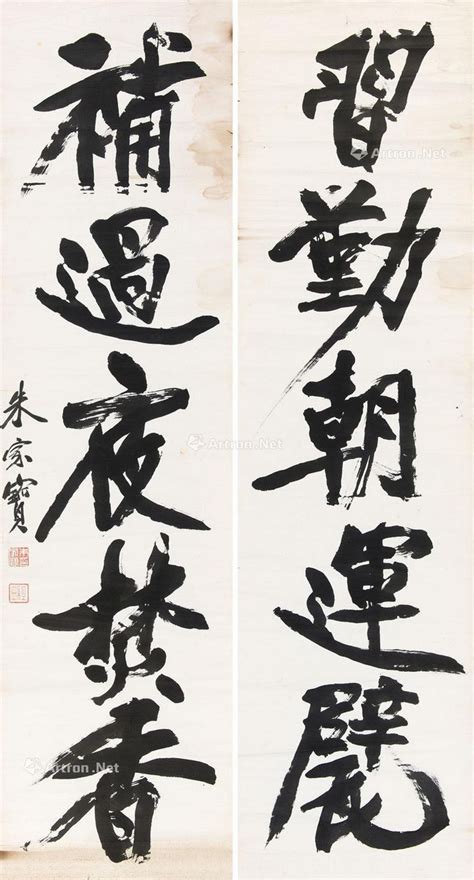 習勤朝運甓
補過夜焚香
朱家寶
Artron.Net
Artron.Net
Artron.Net
Artron.Net
Artron.Net